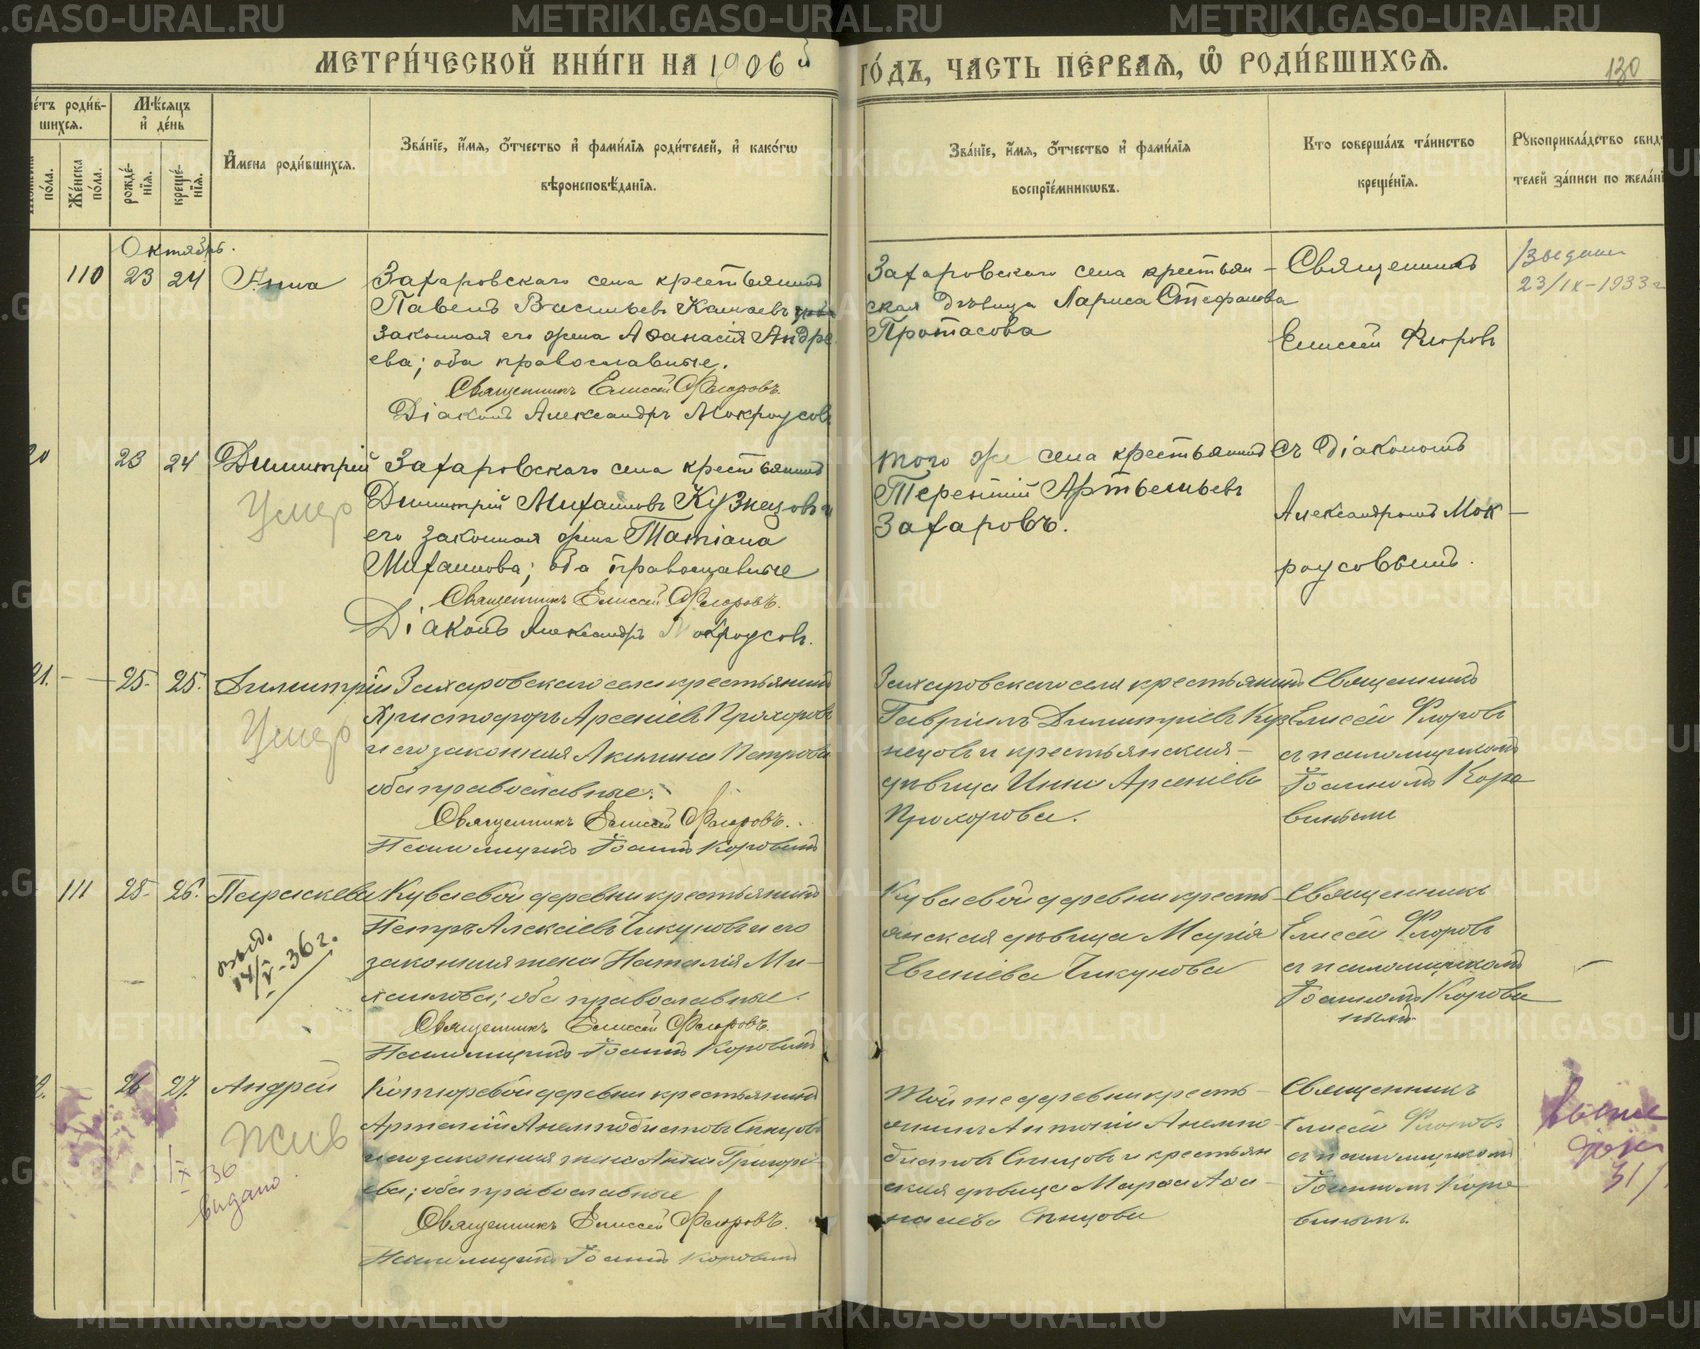 МЕТРИ́ЧЕСКОЙ КНИ́ГИ НА 1906 й
ГО́ДЪ, ЧАСТЬ ПЕ́РВАЯ, Ѽ РОДИ́ВШИХСЯ.
130
роди́в-
шихся.
Мѣ́сяцъ
и҆ де́нь
по́ла.
Же́нска
по́ла.
рожде́-
нїя.
креще́-
нїя.
И҆мена роди́вшихся.
Зва́нїе, и҆́мя, о҆́тчество и҆ фами́лїя роди́телей, и҆ како́гѡ
вѣроисповѣ́данїя.
Зва́нїе, и҆́мя, о҆́тчество и҆ фами́лїя
воспрїе́мникѡвъ.
Кто соверша́лъ та́инство
креще́нїя.
Рукоприкла́дство свид
телей за́писи по жела́нї
Октябрь.
110 23 24 Анна
Захаровскаго села крестьянинъ
Павелъ Васильевъ
законная его жена Афанасія Андре
ева; оба православные.
Священникъ Елисей Флоровъ.
Діаконъ Александръ Мокроусовъ
Захаровскаго села крестьян-
ская дѣвица Лариса Стефанова
Протасова
Священникъ
Елисей Флоровъ
Выдана
23/IX-1933 г
20 23 24 Димитрій
Умер
Захаровскаго села крестьянинъ
Димитрій Михаиловъ Кузнецовъ и
его законная жена Татіана
Михаилова; оба православные
Священникъ Елисей Флоровъ.
Діаконъ Александръ Мокроусовъ.
того же села крестьянинъ
Терентій Артемьевъ
Захаровъ.
съ Діакономъ
Александромъ Мок-
роусовымъ.
21. - - 25. 25. Димитрій
Умер
Захаровскаго села крестьянинъ
Христофоръ Арсеніевъ Прохоровъ
и его законная Акилина Петрова
оба православные.
Священникъ Елисей Флоровъ.
Псаломщикъ Іоаннъ Коровинъ
Захаровскаго села крестьянинъ
Гавріилъ Димитріевъ Куз
нецовъ и крестьянская-
дѣвица Анна Арсеніева
Прохорова.
Священникъ
Елисей Флоровъ
съ псаломщикомъ
Іоанномъ Коро
винымъ
111 25. 26. Параскева
выд.
14/V-36 г.
Куваевой деревни крестьянинъ
Петръ Алексіевъ Чикуновъ и его
законная жена Наталія Ми-
хаилова; оба православные.
Священникъ Елисей Флоровъ.
Псаломщикъ Іоаннъ Коровинъ
Куваевой деревни кресть-
янская дѣвица Марія
Евгеніева Чикунова
Священникъ
Елисей Флоровъ
съ псаломщикомъ
Іоанномъ Корови
нымъ
26 27. Андрей
жив
1/IX 36
видано.
деревни крестьянинъ
Артемій Анемподистовъ
и его законная жена Анна Григорі-
ева; оба православные
Священникъ Елисей Флоровъ.
Псаломщикъ Іоаннъ Коровинъ
Той же деревни кресть-
янинъ Антоній Анемпо-
дистовъ и крестьян
ская дѣвица Марфа Афа-
насіева
Священникъ
Елисей Флоровъ
съ псаломщикомъ
Іоанномъ Коро-
винымъ.
31/
METRIKI.GASO-URAL.RU